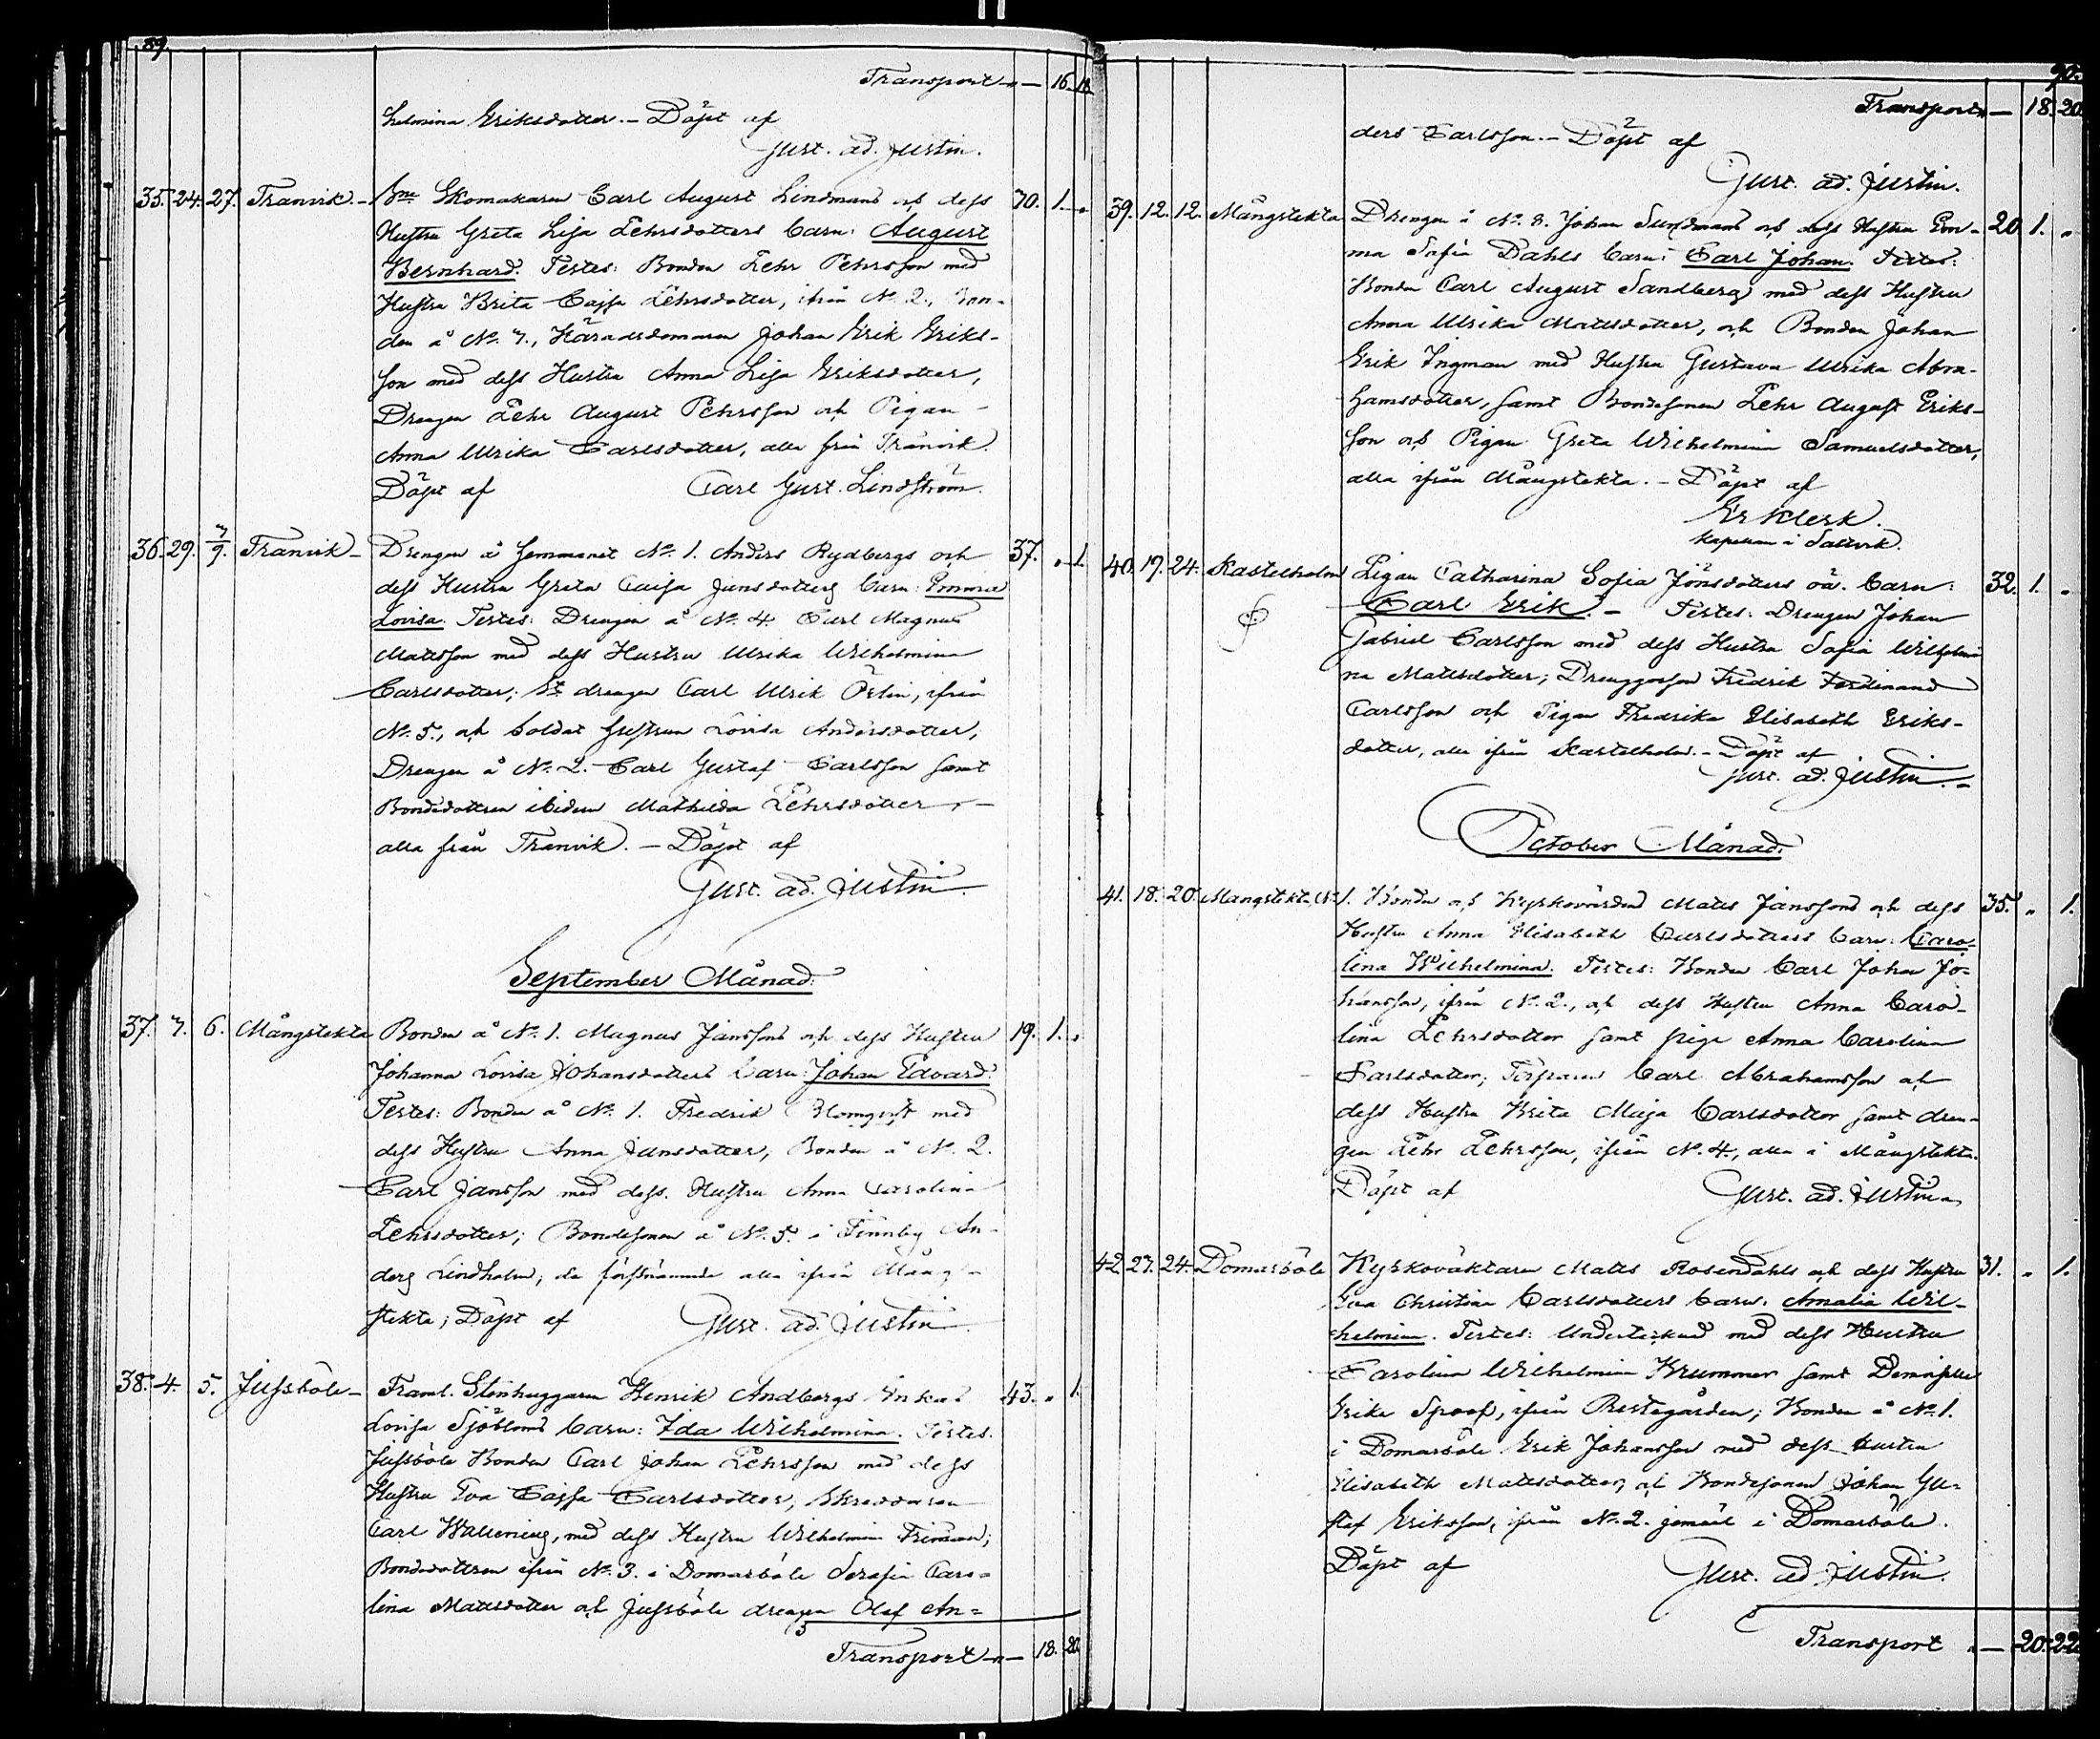 89.
Transport „ — 16. 18.
helmina Eriksdotter. — Döpt af
Gust. ad. Justin.
35. 24. 27. Tranvik. — Skomakaren Carl August Lindmans och dess 30. 1. „
Hustru Greta Lisa Pehrsdotters barn: August
Bernhard. Testes: Bonden Pehr Pehrsson med
Hustru Brita Cajsa Pehrsdotter, ifrån No. 2., Bon-
den å No. 7., Häradsdomaren Johan Erik Eriks-
son med dess Hustru Anna Lisa Eriksdotter,
Drengen Pehr August Pehrsson och Pigan
Anna Ulrika Carlsdotter, alla från Tranvik.
Döpt af Carl Gust. Lindström.
36. 29. 7/9. Tranvik — Drengen å hemmanet No. 1. Anders Rydbergs och 37. „ 1.
dess Hustru Greta Caisa Jansdotters barn: Emma
Lovisa. Testes: Drengen å No. 4. Carl Magnus
Mattsson med dess Hustru Ulrika Wilhelmina
Carlsdotter; drengen Carl Ulrik Öhlin, ifrån
No. 5., och Soldat hustrun Lovisa Andersdotter,
Drengen å No. 2. Carl Gustaf Carlsson samt
Bondedottren ibidem Mathilda Pehrsdotter, —
alla från Tranvik. — Döpt af
Gust. ad. Justin.
September Månad.
37. 3. 6. Mångstekta Bonden å No. 1. Magnus Janssons och dess Hustru 19. 1. „
Johanna Lovisa Johansdotters barn: Johan Edvard.
Testes: Bonden å No. 1. Fredrik Blomqvist med
dess Hustru Anna Jansdotter, Bonden å No. 2.
Carl Jansson med dess Hustru Anna Carolina
Pehrsdotter; Bondesonen å No. 5. i Finnby An-
ders Lindholm, de förstnämnde alla ifrån Mång-
stekta; Döpt af Gust. ad. Justin.
38. 4. 5. Jussböle — Framl. Stenhuggaren Henrik Andbergs Enkas 43. „ 1.
Lovisa Sjöbloms barn: Ida Wilhelmina. Testes:
Jussböle Bonden Carl Johan Pehrsson med dess
Hustru Eva Cajsa Carlsdotter; Skreddaren
Carl Wallenius, med dess Hustru Wilhelmina Friman;
Bondedottren ifrån No. 3. i Domarböle Serafia Caro-
lina Mattsdotter och Jussböle drengen Olof An-
Transport „ — 18. 20.
90.
Transport „ — 18. 20.
ders Carlsson. — Döpt af
Gust. ad. Justin.
39. 12. 12. Mångstekta Drengen å No. 8. Johan Sundmans och dess Hustru Em- 20. 1. „
ma Sofia Dahls barn: Carl Johan. Testes:
Bonden Carl August Sandberg med dess Hustru
Anna Ulrika Mattsdotter, och Bonden Johan
Erik Ingman med Hustru Gustava Ulrika Abra-
hamsdotter, samt Bondesonen Pehr August Eriks-
son och Pigan Greta Wilhelmina Samuelsdotter,
alla ifrån Mångstekta. — Döpt af
Er Klerk.
Kapellan i Saltvik.
40. 19. 24. Kastelholm Pigan Catharina Sofia Jönsdotters oä. barn: 32. 1. „
Carl Erik. — Testes: Drengen Johan
Gabriel Carlsson med dess Hustru Sofia Wilhelmi
na Mattsdotter; Drenggossen Fredrik Ferdinand
Carlsson och Pigan Fredrika Elisabeth Eriks-
dotter, alla ifrån Kastelholm. — Döpt af
Gust. ad. Justin. —
October Månad.
41. 18. 20. Mangstekta No. 1. Bonden och Kyrkovärden Matts Janssons och dess 35. „ 1.
Hustru Anna Elisabeth Carlsdotters barn: Caro-
lina Wilhelmina. Testes: Bonden Carl Johan Jo-
hansson, ifrån No. 2., och dess Hustru Anna Caro-
lina Pehrsdotter samt pigan Anna Carolina
Carlsdotter; Torparen Carl Abrahamsson och
dess Hustru Brita Maja Carlsdotter samt dren-
gen Pehr Pehrsson, ifrån No. 4., alla i Mångstekta.
Döpt af Gust. ad. Justin.
42. 23. 24. Domarböle Kyrkoväktaren Matts Rosendahls och dess Hustru 31. „ 1.
Eva Christina Carlsdotters barn: Amalia Wil-
helmina. Testes: Undertecknad med dess Hustru
Carolina Wilhelmina Krummer samt Demoiselle
Erika Spoof, ifrån Prestegården; Bonden å No. 1.
i Domarböle Erik Johansson med dess hustru
Elisabeth Mattsdotter, och Bondesonen Johan Gu-
staf Eriksson, ifrån No. 2. jemväl i Domarböle.
Döpt af Gust. ad. Justin.
Transport „ — 20. 22.